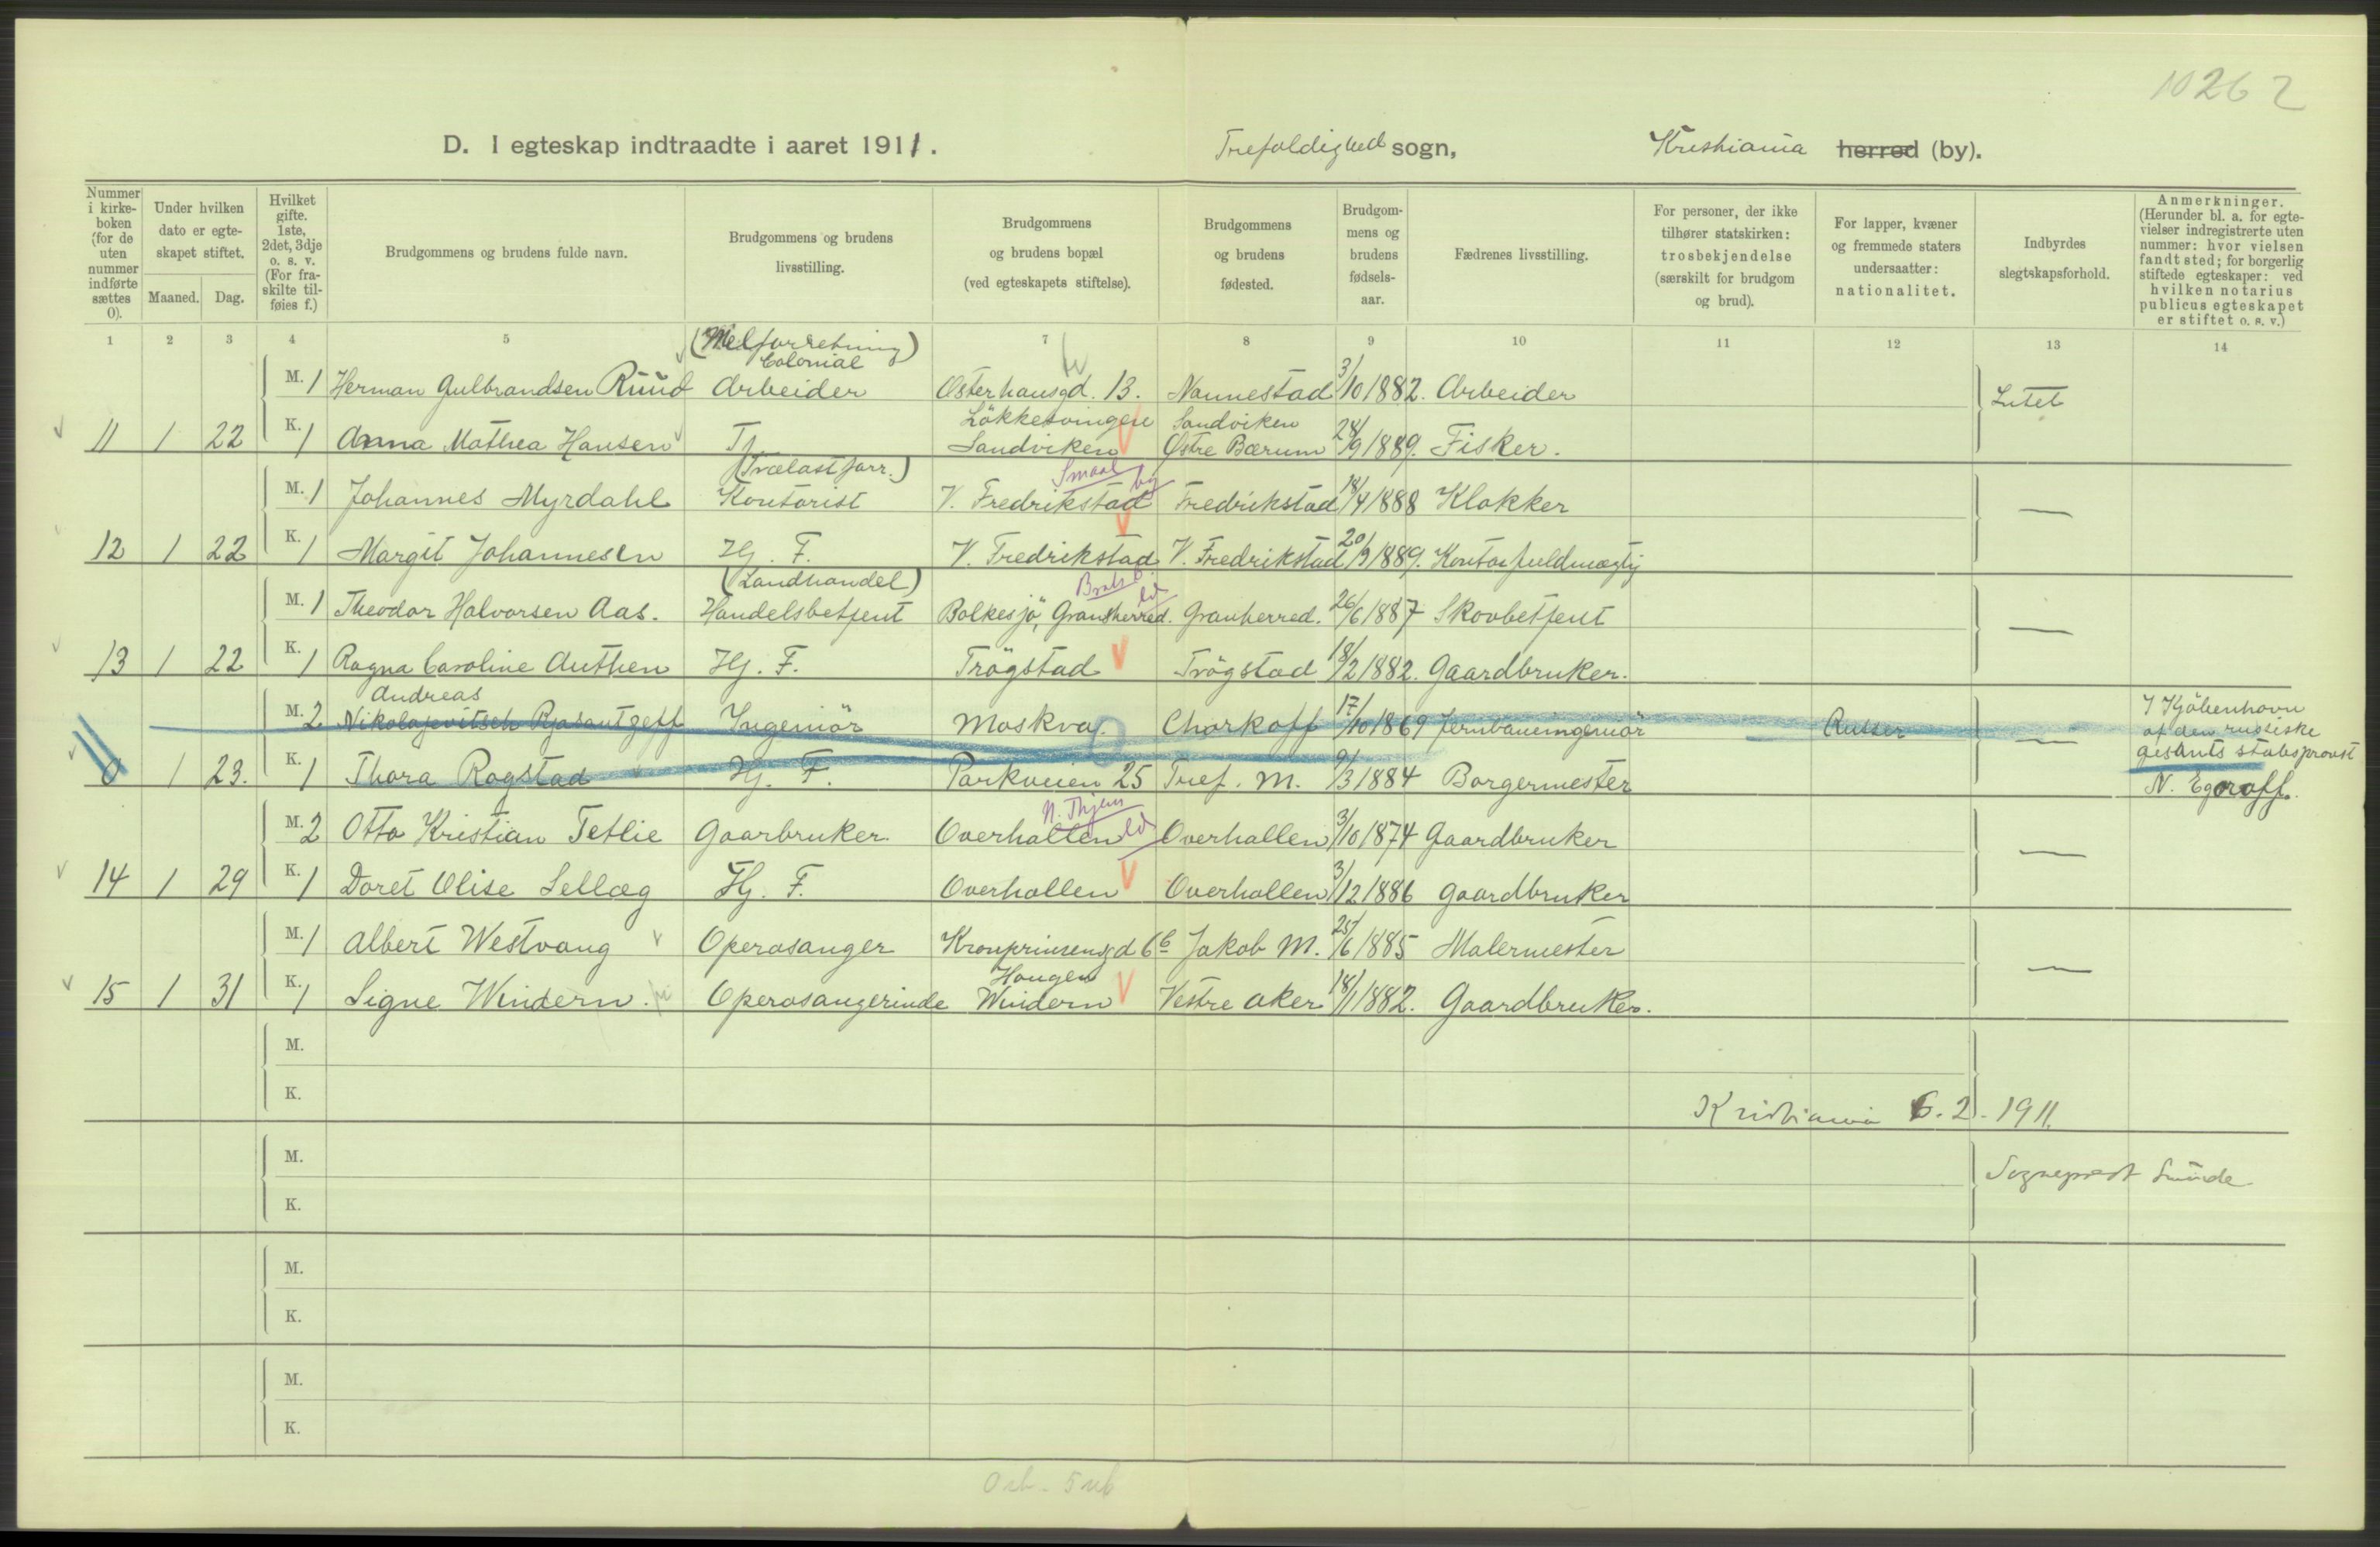 10262
D. I egteskap indtraadte i aaret 1911. Trefoldighed sogn, Kristiania herred (by).
Nummer i kirkeboken (for de uten nummer indførte sættes 0).
Under hvilken dato er egteskapet stiftet.
Maaned. Dag.
Hvilket gifte. 1ste, 2det, 3dje o. s. v. (For fraskilte tilføies f.)
Brudgommens og brudens fulde navn.
Brudgommens og brudens livsstilling.
Brudgommens og brudens bopæl (ved egteskapets stiftelse).
Brudgommens og brudens fødested.
Brudgommens og brudens fødselsaar.
Fædrenes livsstilling.
For personer, der ikke tilhører statskirken: trosbekjendelse (særskilt for brudgom og brud).
For lapper, kvæner og fremmede staters undersaatter: nationalitet.
Indbyrdes slegtskapsforhold.
Anmerkninger. (Herunder bl. a. for egtevielser indregistrerte uten nummer: hvor vielsen fandt sted; for borgerlig stiftede egteskaper: ved hvilken notarius publicus egteskapet er stiftet o. s. v.)
1 2 3 4 5 6 7 8 9 10 11 12 13 14
(Melforretning)
Colonial
M. 1 Herman Gulbrandsen Ruud Arbeider Osterhausgd. 13. Nannestad 3/10 1882. Arbeider Intet
Løkkesvingen Sandviken
11 1 22 K. 1 Anna Mathea Hansen Tj. Sandviken Østre Bærum 24/9 1889. Fisker.
(Trælastforr.) Smaal by
M. 1 Johannes Myrdahl Kontorist V. Fredrikstad Fredrikstad 18/4 1888 Klokker —
12 1 22 K. 1 Margit Johannesen Hj. F. V. Fredrikstad V. Fredrikstad 20/9 1889. Kontorfuldmægtig
(Landhandel) Bratsb. ld
M. 1 Theodor Halvorsen Aas. Handelsbetjent Bolkesjö, Gransherred. Granherred. 26/6 1887 Skovbetjent —
13 1 22 K. 1 Ragna Caroline Authen Hj. F. Trögstad Trögstad 18/2 1882. Gaardbruker.
Andreas
M. 2 Nikolajevitsch Rjasantzeff Ingeniör Moskva. Charkoff 17/10 1869 Jernbaneingeniör Russer —
I Kjöbenhavn
af den russiske
gesants stabsprovst
N. Egoroff.
0 1 23. K. 1 Thora Rogstad Hj. F. Parkveien 25 Tref. M. 9/3 1884 Borgermester
N. Thjem ld
M. 2 Otto Kristian Tetlie Gaarbruker Overhallen Overhallen 3/10 1874 Gaardbruker —
14 1 29 K. 1 Doret Olise Sellæg Hj. F. Overhallen Overhallen 3/12 1886 Gaardbruker
M. 1 Albert Westvang Operasanger Kronprinsensgd 6b Jakob M. 25/6 1885 Malermester —
Haugen
15 1 31 K. 1 Signe Windern. Operasangerinde Windern Vestre Aker 18/1 1882. Gaardbruker.
M.
K.
Kristiania 6. 2. 1911.
M.
Sogneprest Sunde
K.
M.
K.
M.
K.